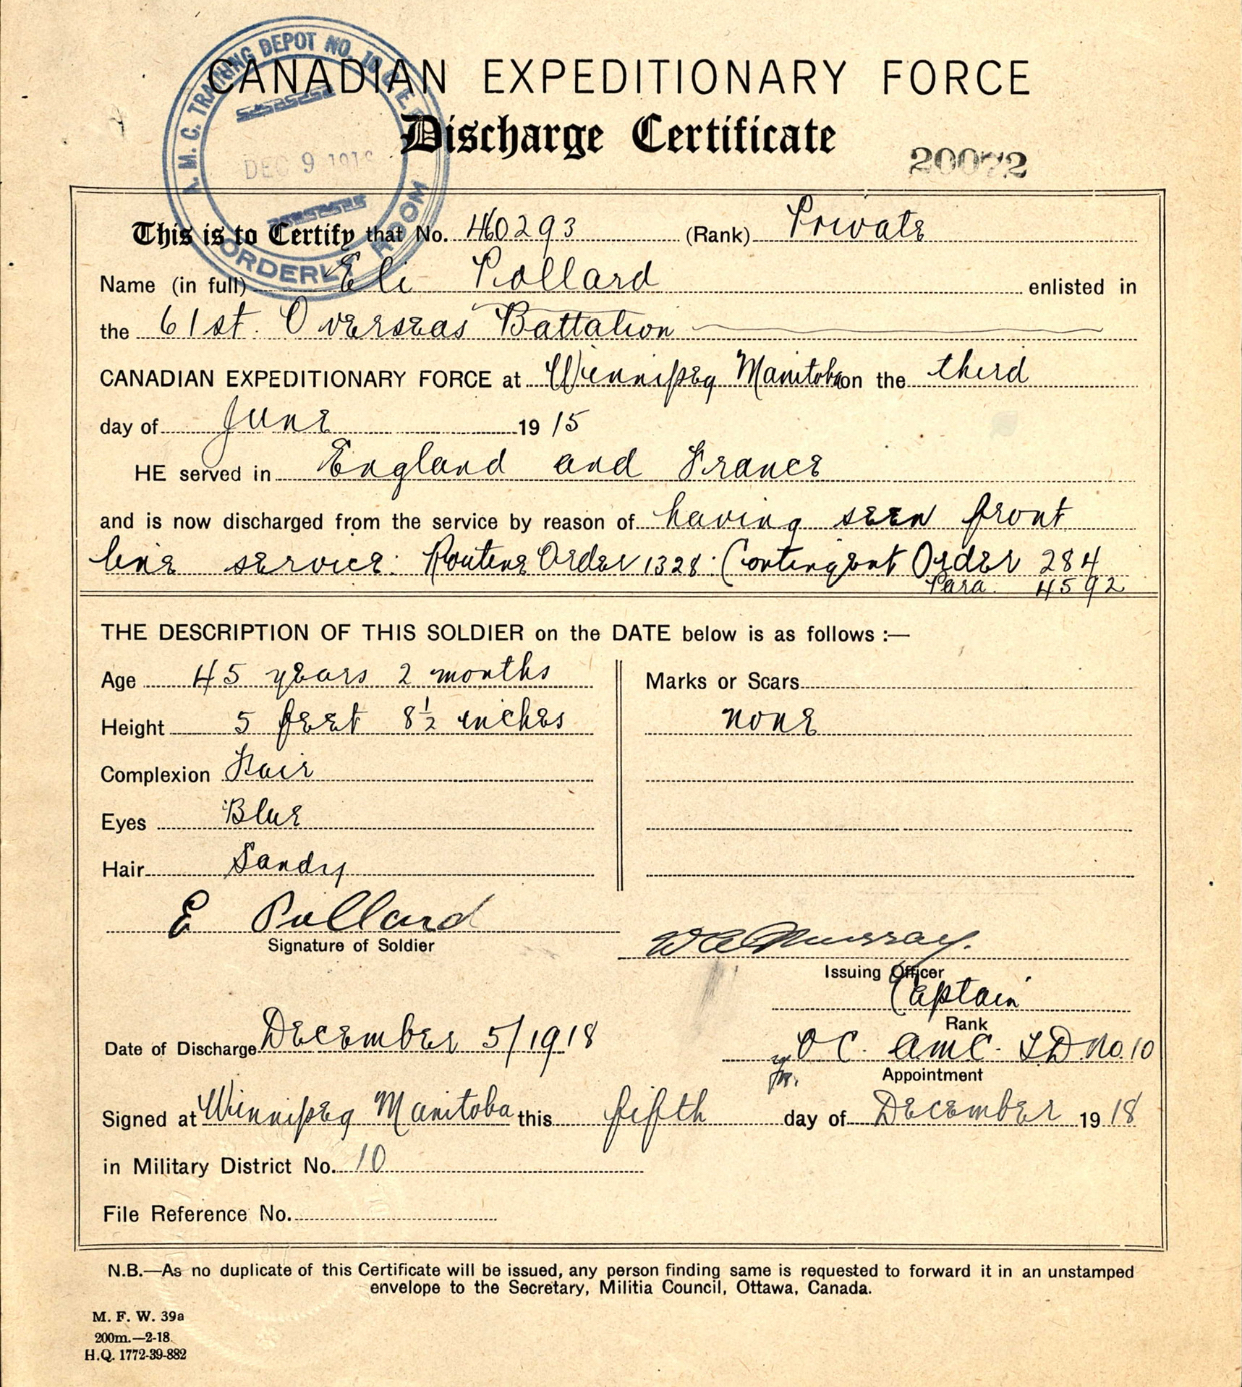 A. M. C. TRAINING DEPOT NO. 10 C.E.F.
DEC 9 1918
ORDERLY ROOM
CANADIAN EXPEDITIONARY FORCE
Discharge Certificate
20072
This is to Certify that No. 460293 (Rank) Private
Name (in full) Eli Pollard enlisted in
the 61st. Overseas Battalion
CANADIAN EXPEDITIONARY FORCE at Winnipeg Manitoba on the third
day of June 1915
HE served in England and France
and is now discharged from the service by reason of having seen front
line service: Routine Order 1328: Contingent Order 284
Para. 4592
THE DESCRIPTION OF THIS SOLDIER on the DATE below is as follows :—
Age 45 years 2 months
Height 5 feet 8½ inches
Complexion Fair
Eyes Blue
Hair Sandy
Marks or Scars
none
E Pollard
Signature of Soldier
Murray.
Issuing Officer
Captain
Rank
Date of Discharge December 5/1918
OC. AMC. TD No. 10
Appointment
Signed at Winnipeg Manitoba this fifth day of December 1918
in Military District No. 10
File Reference No.
N.B.—As no duplicate of this Certificate will be issued, any person finding same is requested to forward it in an unstamped
envelope to the Secretary, Militia Council, Ottawa, Canada.
M. F. W. 39a
200m.—2-18.
H.Q. 1772-39-882